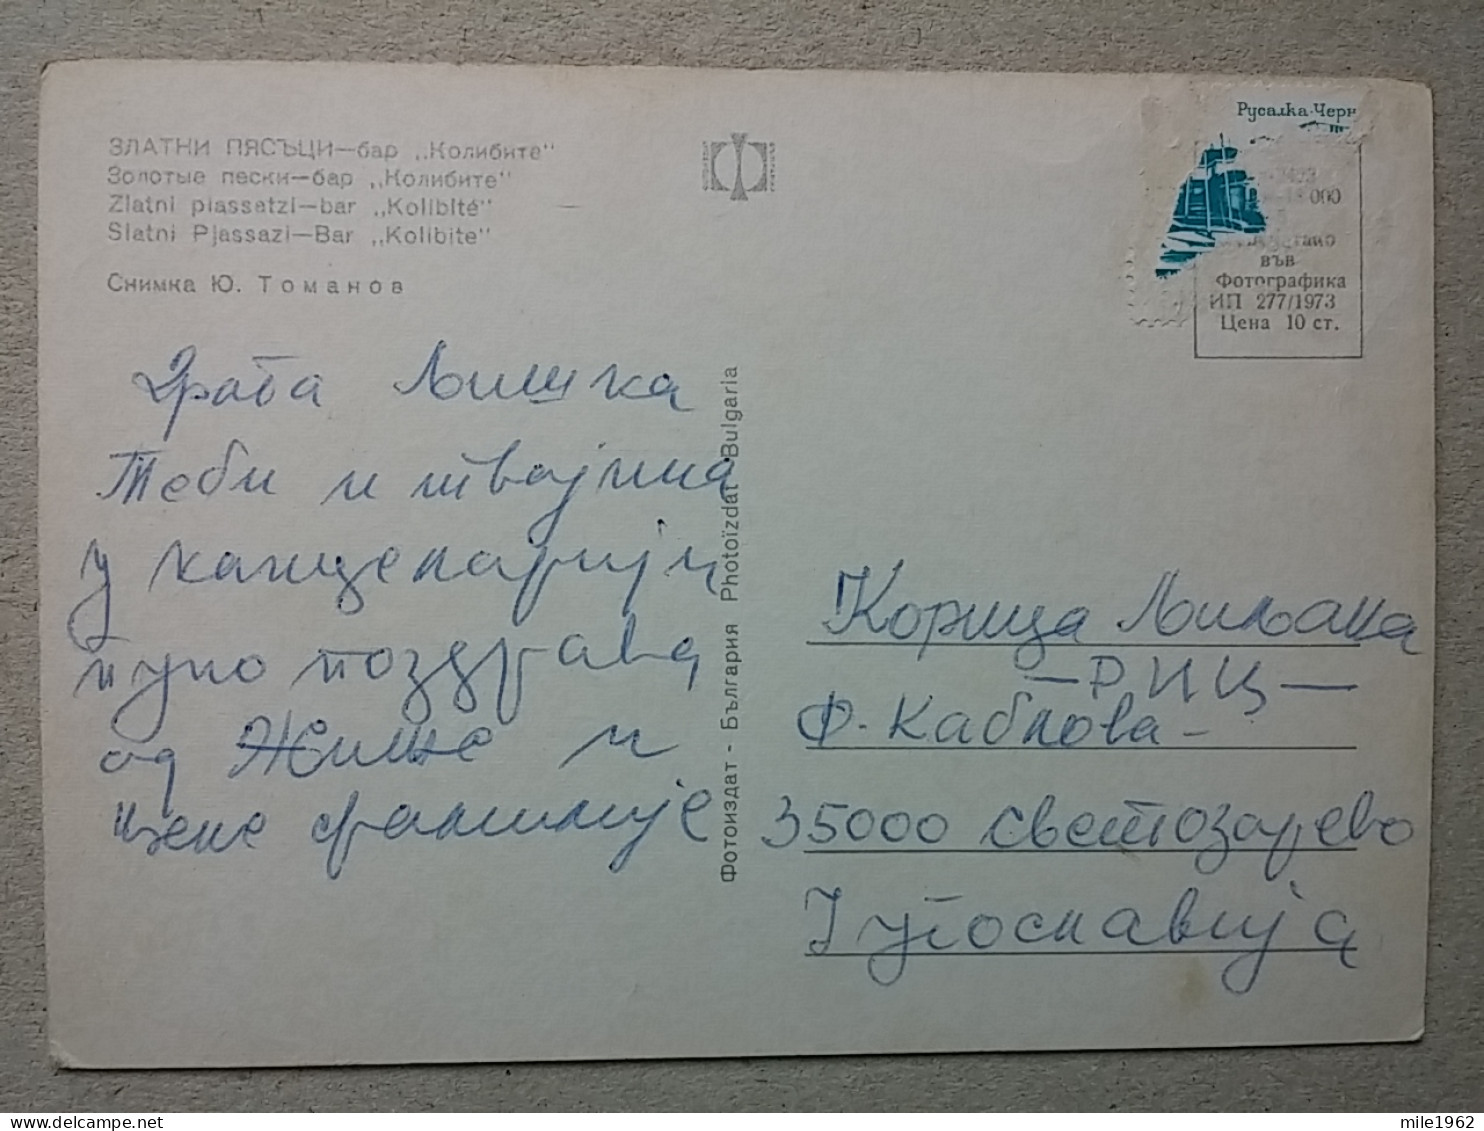 ЗЛАТНИ ПЯСЪЦИ—бар „Колибите"
Золотые пески—бар „Колибите"
Zlatni piassatzi—bar „Kolibité"
Slatni Pjassazi—Bar „Kolibite"
Снимка Ю. Томанов
Драга Љишка
Теби и твојима
у канцеларији
пуно поздрава
од Жиље и
њене фамилије
Фотоиздат - България Photoïzdat Bulgaria
Русалка-Черн
000
във
Фотографика
ИП 277/1973
Цена 10 ст.
Корица Љиљана
—РИЦ—
Ф. Каблова -
35000 Светозарево
Југославија
mile1962